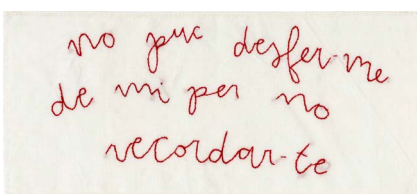 no puc desfer-me
de mi per no
recordar-te